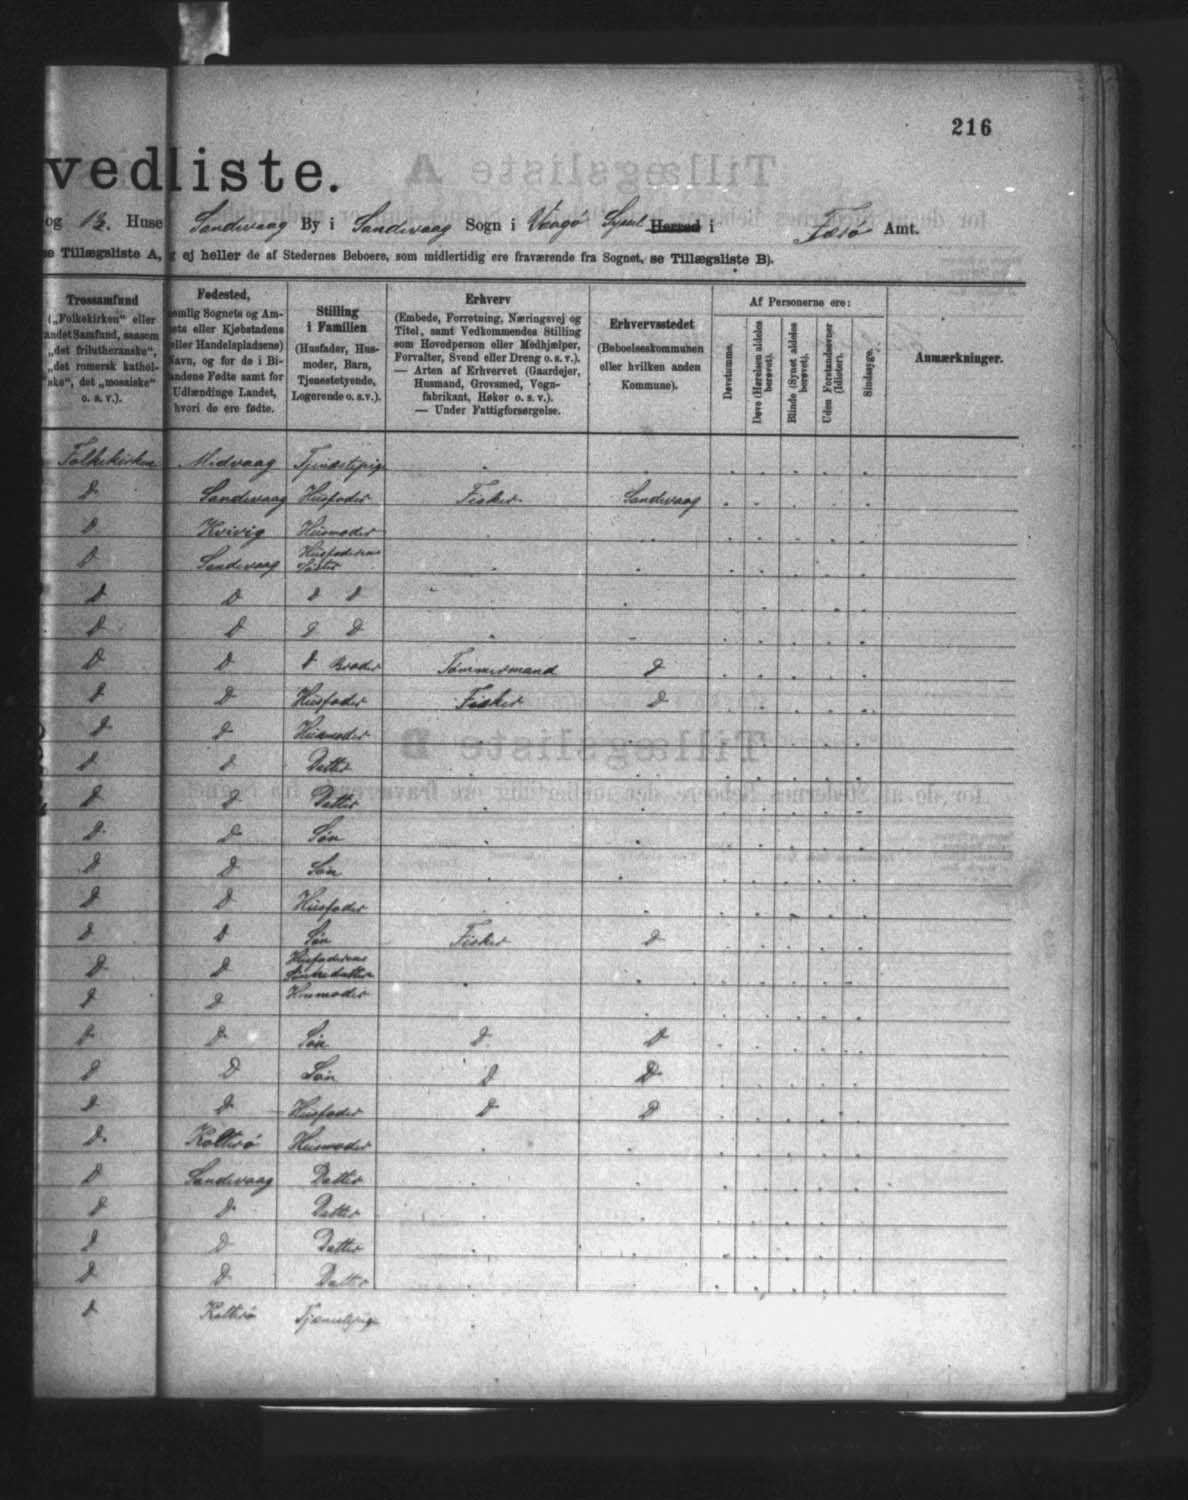 216
vedliste.
og 13. Huse Sandevaag By i Sandevaag Sogn i Vaagø Syssel Herred i Færø Amt.
se Tillægsliste A, g ej heller de af Stedernes Beboere, som midlertidig ere fraværende fra Sognet, se Tillægsliste B).
Trossamfund
(„Folkekirken“ eller
andet Samfund, saasom
„det frilutheranske“,
„det romersk kathol-
ske“, det „mosaiske“
o. s. v.).
Fødested,
nemlig Sognets og Am-
ets eller Kjøbstadens
eller Handelspladsens)
Navn, og for de i Bi-
andene Fødte samt for
Udlændinge Landet,
hvori de ere fødte.
Stilling
i Familien
(Husfader, Hus-
moder, Barn,
Tjenestetyende,
Logerende o. s. v.).
Erhverv
(Embede, Forretning, Næringsvej og
Titel, samt Vedkommendes Stilling
som Hovedperson eller Medhjælper,
Forvalter, Svend eller Dreng o. s. v.).
— Arten af Erhvervet (Gaardejer,
Husmand, Grovsmed, Vogn-
fabrikant, Høker o. s. v.).
— Under Fattigforsørgelse.
Erhvervsstedet
(Beboelseskommunen
eller hvilken anden
Kommune).
Af Personerne ere:
Døvstumme.
Døve (Hørelsen aldeles
berøvet).
Blinde (Synet aldeles
berøvet).
Uden Forstandsevner
(Idioter).
Sindssyge.
Anmærkninger.
Folkekirken Midvaag Tjenestepige
D Sandevaag Husfader Fisker Sandevaag
D Kvivig Husmoder
D Sandevaag Husfaderens Søster
D D D D
D D D D
D D D Broder Tømmermand D
D D Husfader Fisker D
D D Husmoder
D D Datter
D D Datter
D D Søn
D D Søn
D D Husfader
D D Søn Fisker D
D D Husfaderens Sønnedatter
D D Husmoder
D D Søn D D
D D Søn D D
D D Husfader D D
D Kolterø Husmoder
D Sandevaag Datter
D D Datter
D D Datter
D D Datter
D Kolterø Tjenestepige